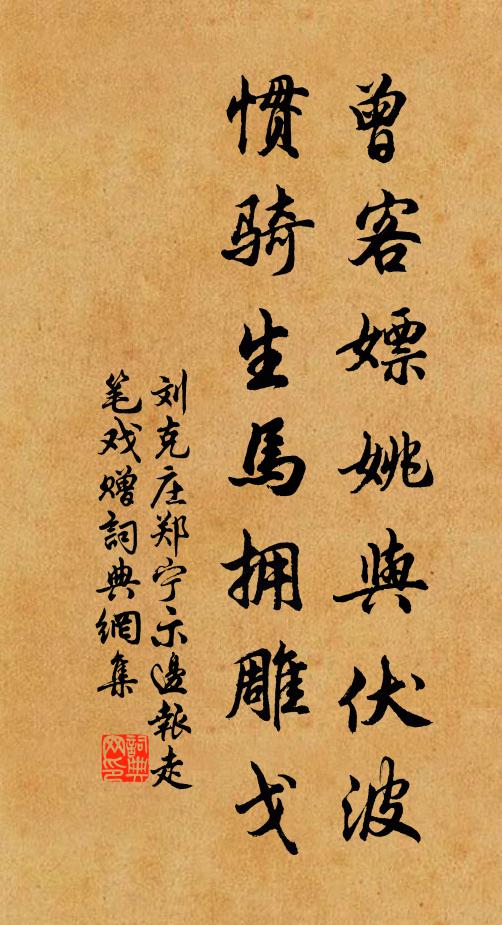 曾客嫖姚與伏波
惯骑生馬拥雕戈
刘克庄郑宁示邊報走
笔戏赠詞典網集
詞典
网印